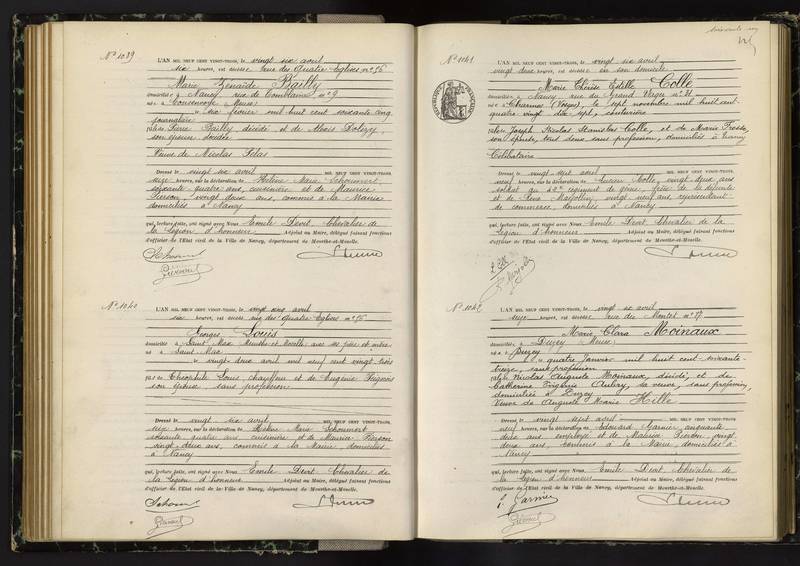 N° 1039
L'AN MIL NEUF CENT VINGT-TROIS, le vingt six avril
six heures, est décédée rue des Quatre Eglises n° 36
Marie Zénaïde Bailly
domiciliée à Nancy rue de n° 9
née à Meuse
le six février mil huit cent soixante cinq
journalière
fille de Pierre Bailly décédé et de
son épouse décédée
Veuve de Nicolas
Devant le vingt six avril MIL NEUF CENT VINGT-TROIS
seize heures, sur la déclaration de Hélène Marie
soixante quatre ans, cuisinière et de Maurice
Pierson, vingt deux ans, commis à la Mairie
domiciliés à Nancy
qui, lecture faite, ont signé avec Nous Emile Chevalier de
la Légion d'honneur Adjoint au Maire, délégué faisant fonctions
d'officier de l'État civil de la Ville de Nancy, département de Meurthe-et-Moselle.
N° 1040
L'AN MIL NEUF CENT VINGT-TROIS, le vingt six avril
six heures, est décédé rue des Quatre Eglises n° 36
Georges Louis
domicilié à Saint Max Meurthe et Moselle avec ses père et mère
né à Saint Max
le vingt deux avril mil neuf cent vingt trois
fils de Théophile Louis, chauffeur et de Eugénie
son épouse, sans profession
Devant le vingt six avril MIL NEUF CENT VINGT-TROIS
seize heures, sur la déclaration de Hélène Marie
soixante quatre ans cuisinière et de Maurice Pierson
vingt deux ans, commis à la Mairie, domiciliés
à Nancy
qui, lecture faite, ont signé avec Nous Emile Chevalier de
la Légion d'honneur Adjoint au Maire, délégué faisant fonctions
d'officier de l'État civil de la Ville de Nancy, département de Meurthe-et-Moselle.
N° 1041
L'AN MIL NEUF CENT VINGT-TROIS, le vingt six avril
vingt deux heures, est décédée en son domicile
Marie Thérèse Estelle Colle
domiciliée à Nancy rue du Grand Verger n° 31
née à Charmes (Vosges) le sept novembre mil huit cent
quatre vingt dix sept, couturière
fille de Joseph Nicolas Stanislas Colle, et de Marie
son épouse, tous deux sans profession, domiciliés à Nancy
Célibataire
Devant le vingt sept avril MIL NEUF CENT VINGT-TROIS
neuf heures, sur la déclaration de Lucien Colle, vingt deux ans
soldat au régiment de génie, frère de la défunte
et de vingt neuf ans, représentant
de commerce, domiciliés à Nancy
qui, lecture faite, ont signé avec Nous Emile Chevalier de la
Légion d'honneur Adjoint au Maire, délégué faisant fonctions
d'officier de l'État civil de la Ville de Nancy, département de Meurthe-et-Moselle.
N° 1042
L'AN MIL NEUF CENT VINGT-TROIS, le vingt six avril
heures, est décédée rue des n° 37
Marie Clara Moinaux
domiciliée à Duzey (Meuse)
née à Duzey
le quatre janvier mil huit cent soixante
treize, sans profession
fille de Nicolas Auguste Moinaux, décédé, et de
Catherine Virginie Aubry, sa veuve, sans profession,
domiciliée à Duzey
Veuve de Auguste Marie Hille
Devant le vingt sept avril MIL NEUF CENT VINGT-TROIS
neuf heures, sur la déclaration de Edouard Garnier, cinquante
deux ans employé et de Maurice Pierson, vingt
deux ans, commis à la Mairie, domiciliés à
Nancy
qui, lecture faite, ont signé avec Nous Emile Chevalier de
la Légion d'honneur Adjoint au Maire, délégué faisant fonctions
d'officier de l'État civil de la Ville de Nancy, département de Meurthe-et-Moselle.
Garnier